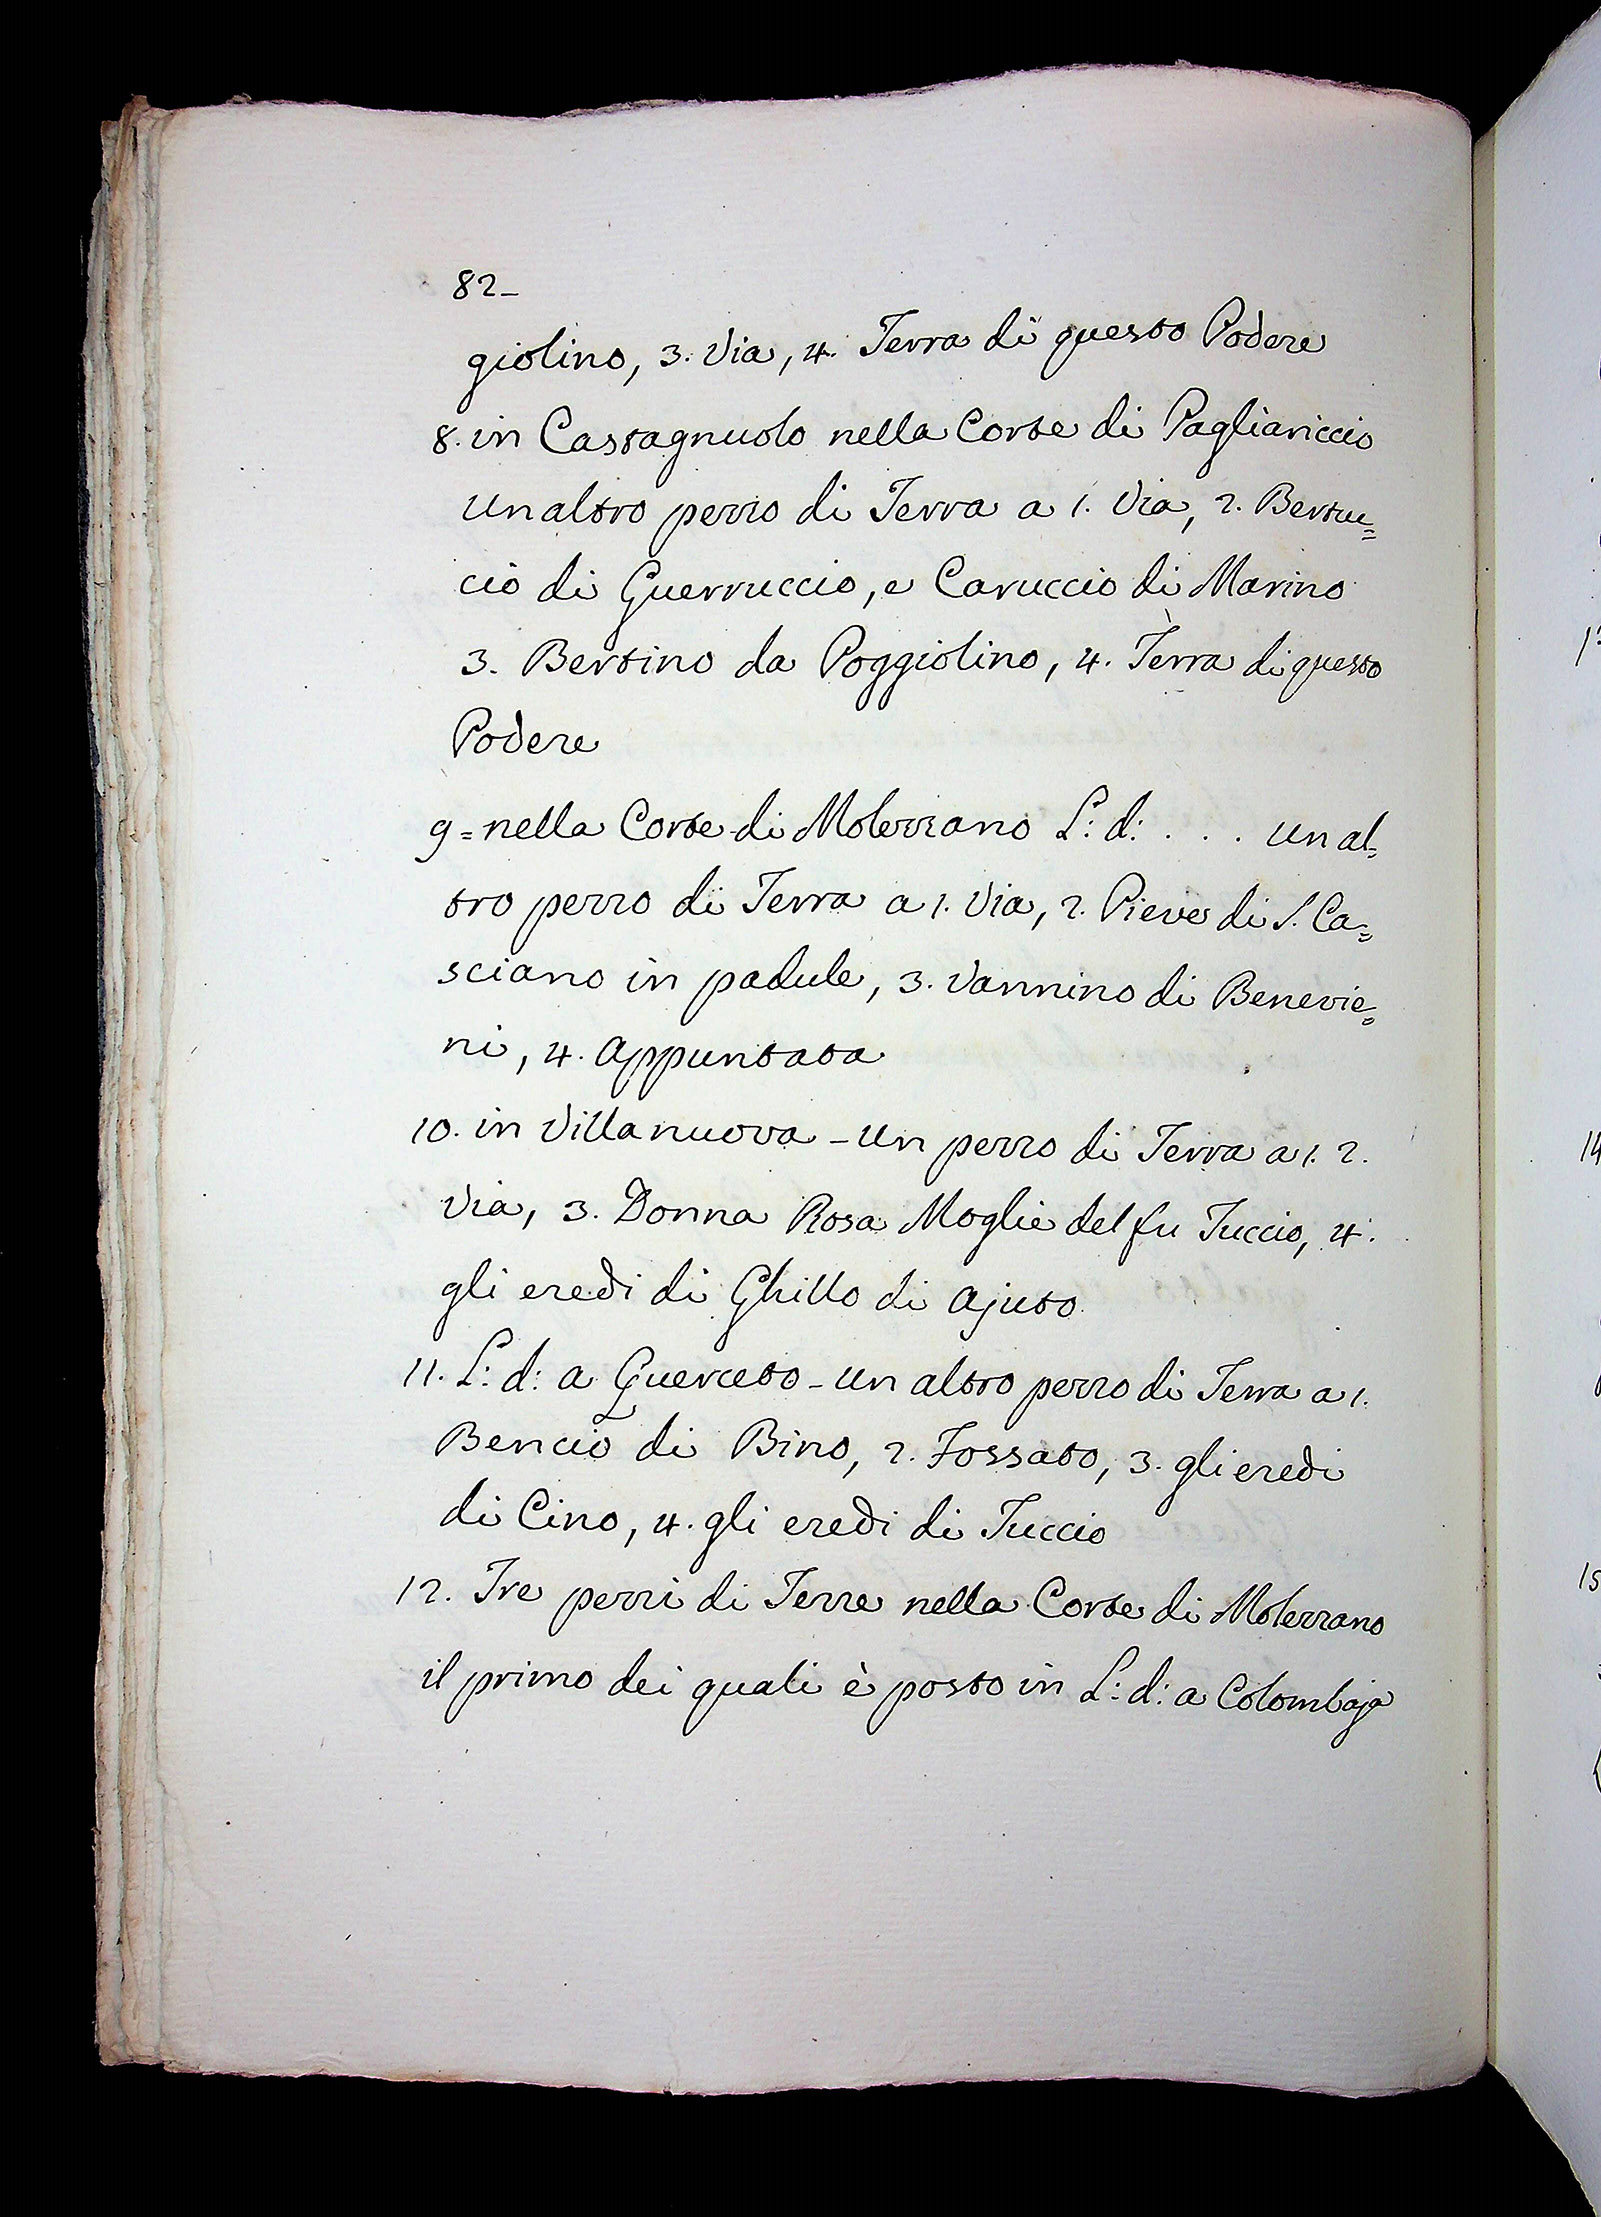 82_
giolino, 3. Via, 4. Terra di questo Podere
8. in Castagnuolo nella Corte di Pagliariccio
un altro pezzo di Terra a 1. Via, 2. Bertu=
cio di Guerruccio, e Caruccio di Marino
3. Bertino da Poggiolino, 4. Terra di questo
Podere
9= nella Corte di Molezzano L: d: . . . un al=
tro pezzo di Terra a 1. Via, 2. Pieve di S. Ca=
sciano in padule, 3. Vannino di Benevie=
ni, 4. Appuntata
10. in Villanuova - un pezzo di Terra a 1. 2.
Via, 3. Donna Rosa Moglie del fu Tuccio, 4.
gli eredi di Ghillo di Ajuto
11. L: d: a Querceto - un altro pezzo di Terra a 1.
Bencio di Bino, 2. Fossato, 3. gli eredi
di Cino, 4. gli eredi di Tuccio
12. Tre pezzi di Terre nella Corte di Molezzano
il primo dei quali è posto in L: d: a Colombaja
14
15